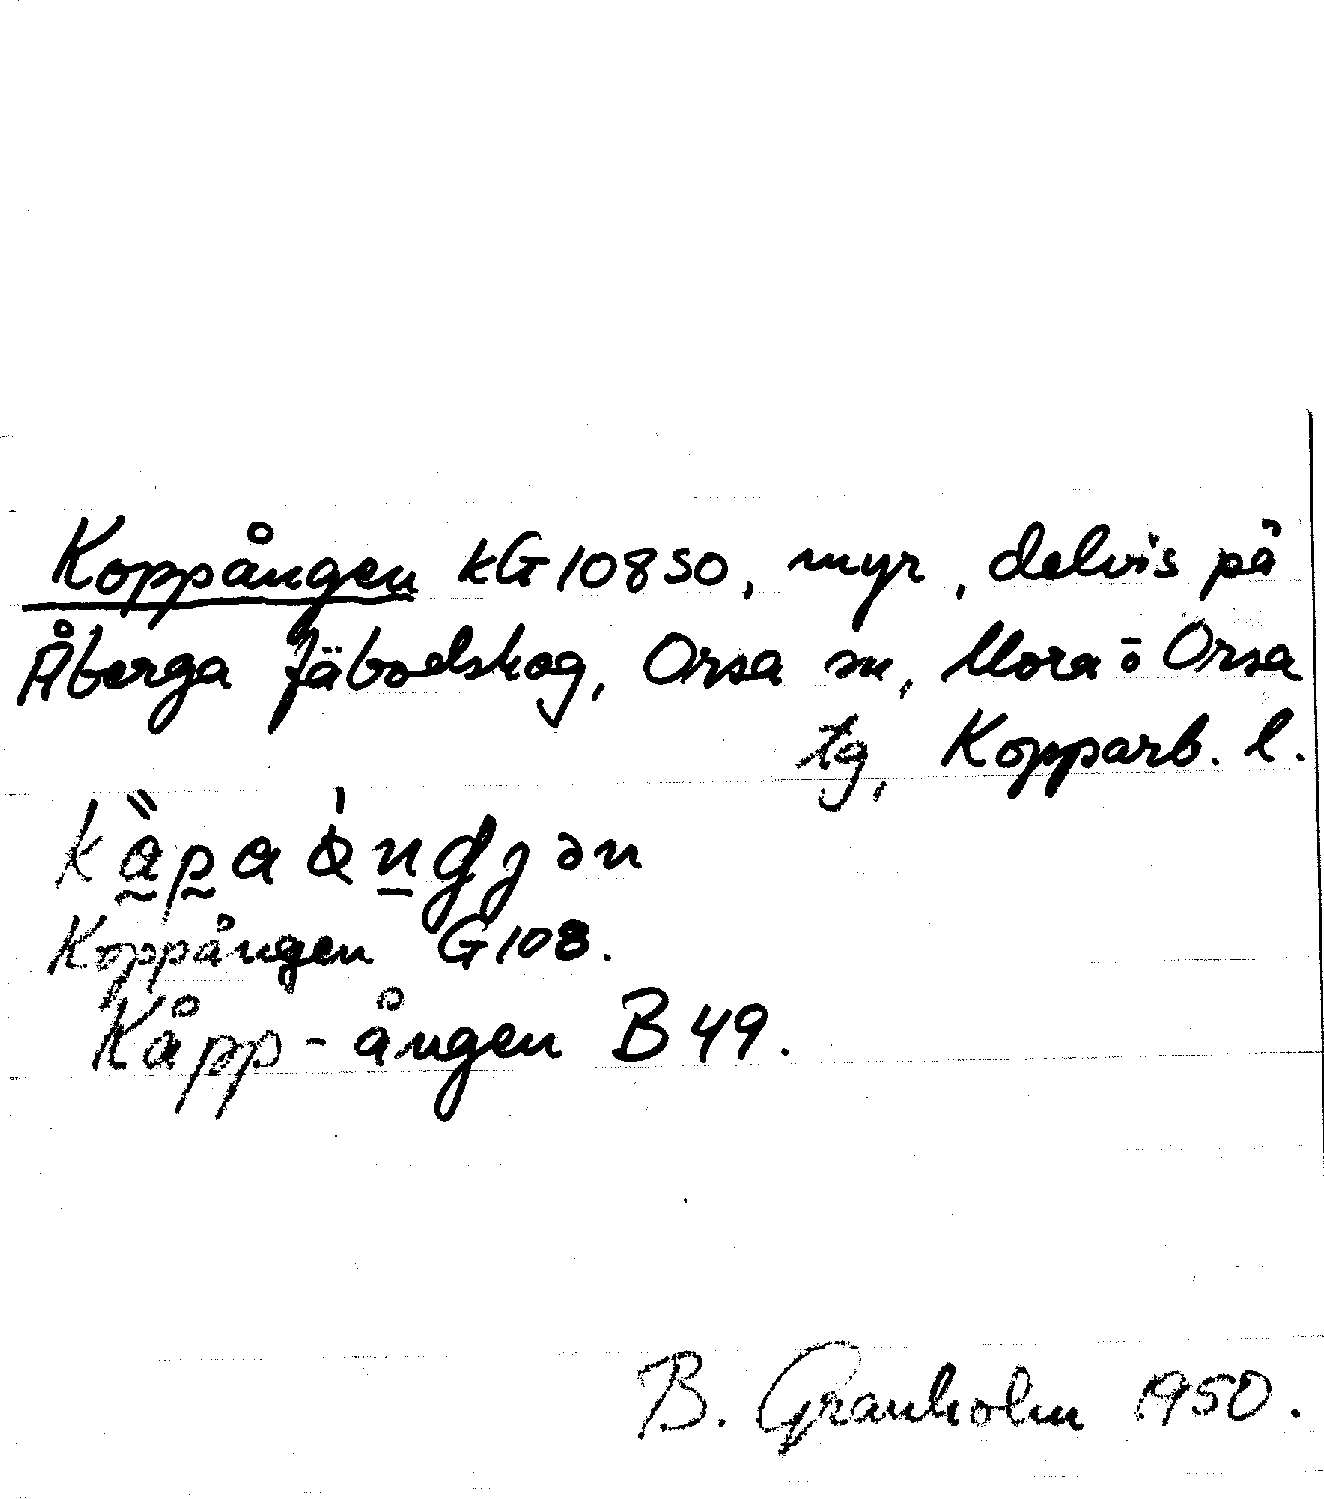 Koppången kG10850, myr, delvis på
Åberga fäbodskog, Orsa sn, Mora o Orsa
tg, Kopparb. l.
Koppången G108.
Kåpp-ången B49.
B. Granholm 1950.